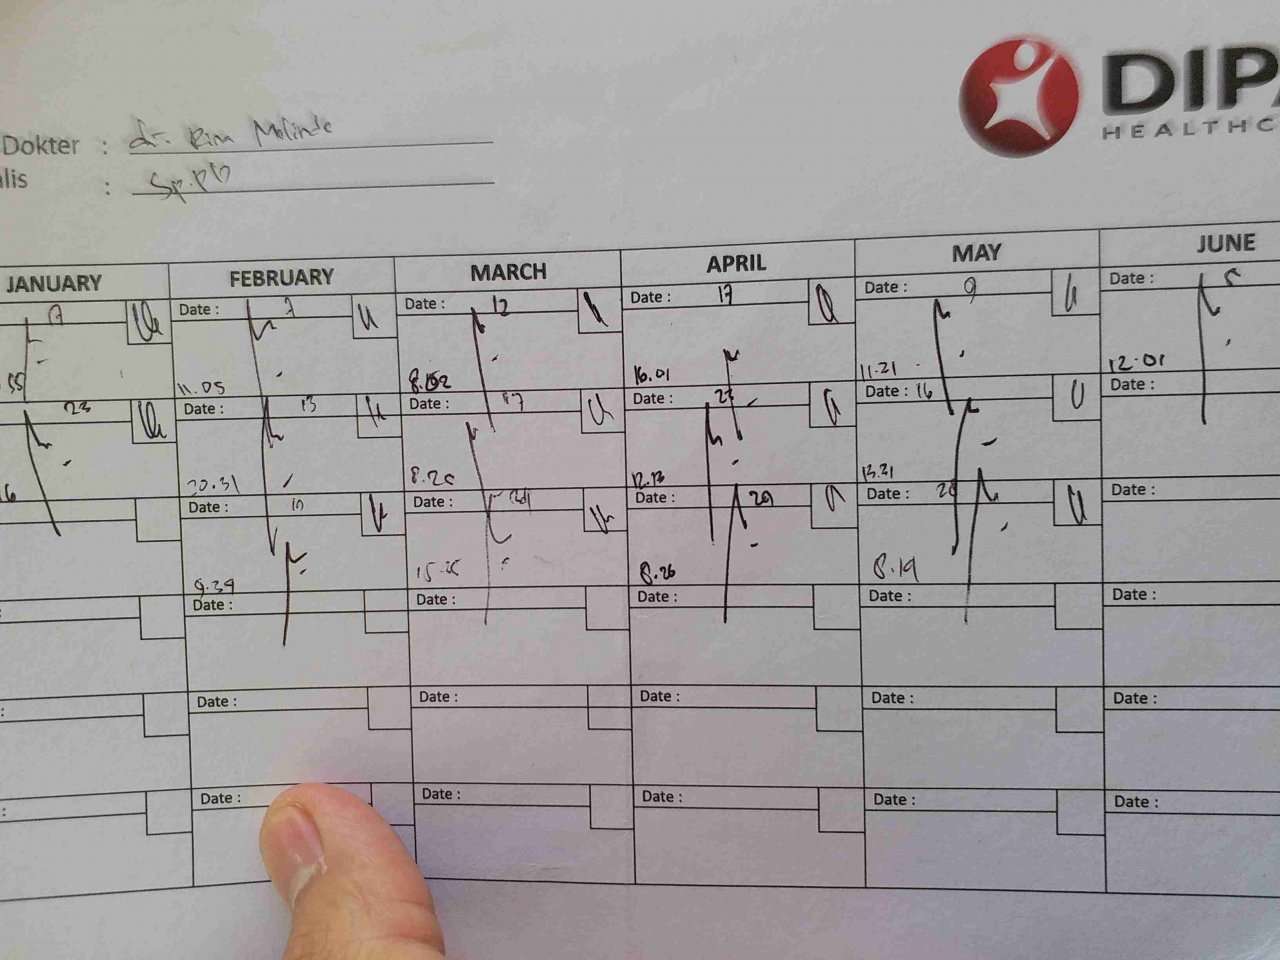 DIPA
HEALTHC
Dokter : dr. Rina Melinda
alis : Sp.PD
JANUARY FEBRUARY MARCH APRIL MAY JUNE
17 Date : 7 Date : 12 Date : 17 Date : 9 Date : 5
55 11.05 8.52 16.01 11.21 12.01
23 Date : 13 Date : 17 Date : 23 Date : 16 Date :
16 20.31 8.20 12.13 13.31
Date : 19 Date : Date : 29 Date : Date :
9.39 15.25 8.26 8.19
: Date : Date : Date : Date : Date :
: Date : Date : Date : Date : Date :
: Date : Date : Date : Date : Date :